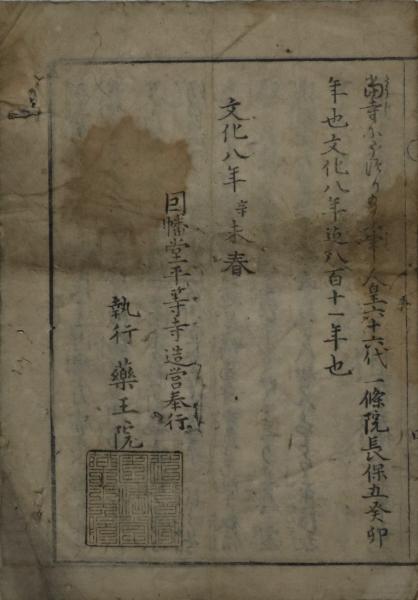 當寺にうつりて人皇六十六代一條院長保五癸卯
年也文化八年迄八百十一年也
文化八年辛未春
因幡堂平等寺造営奉行
執行 藥王院